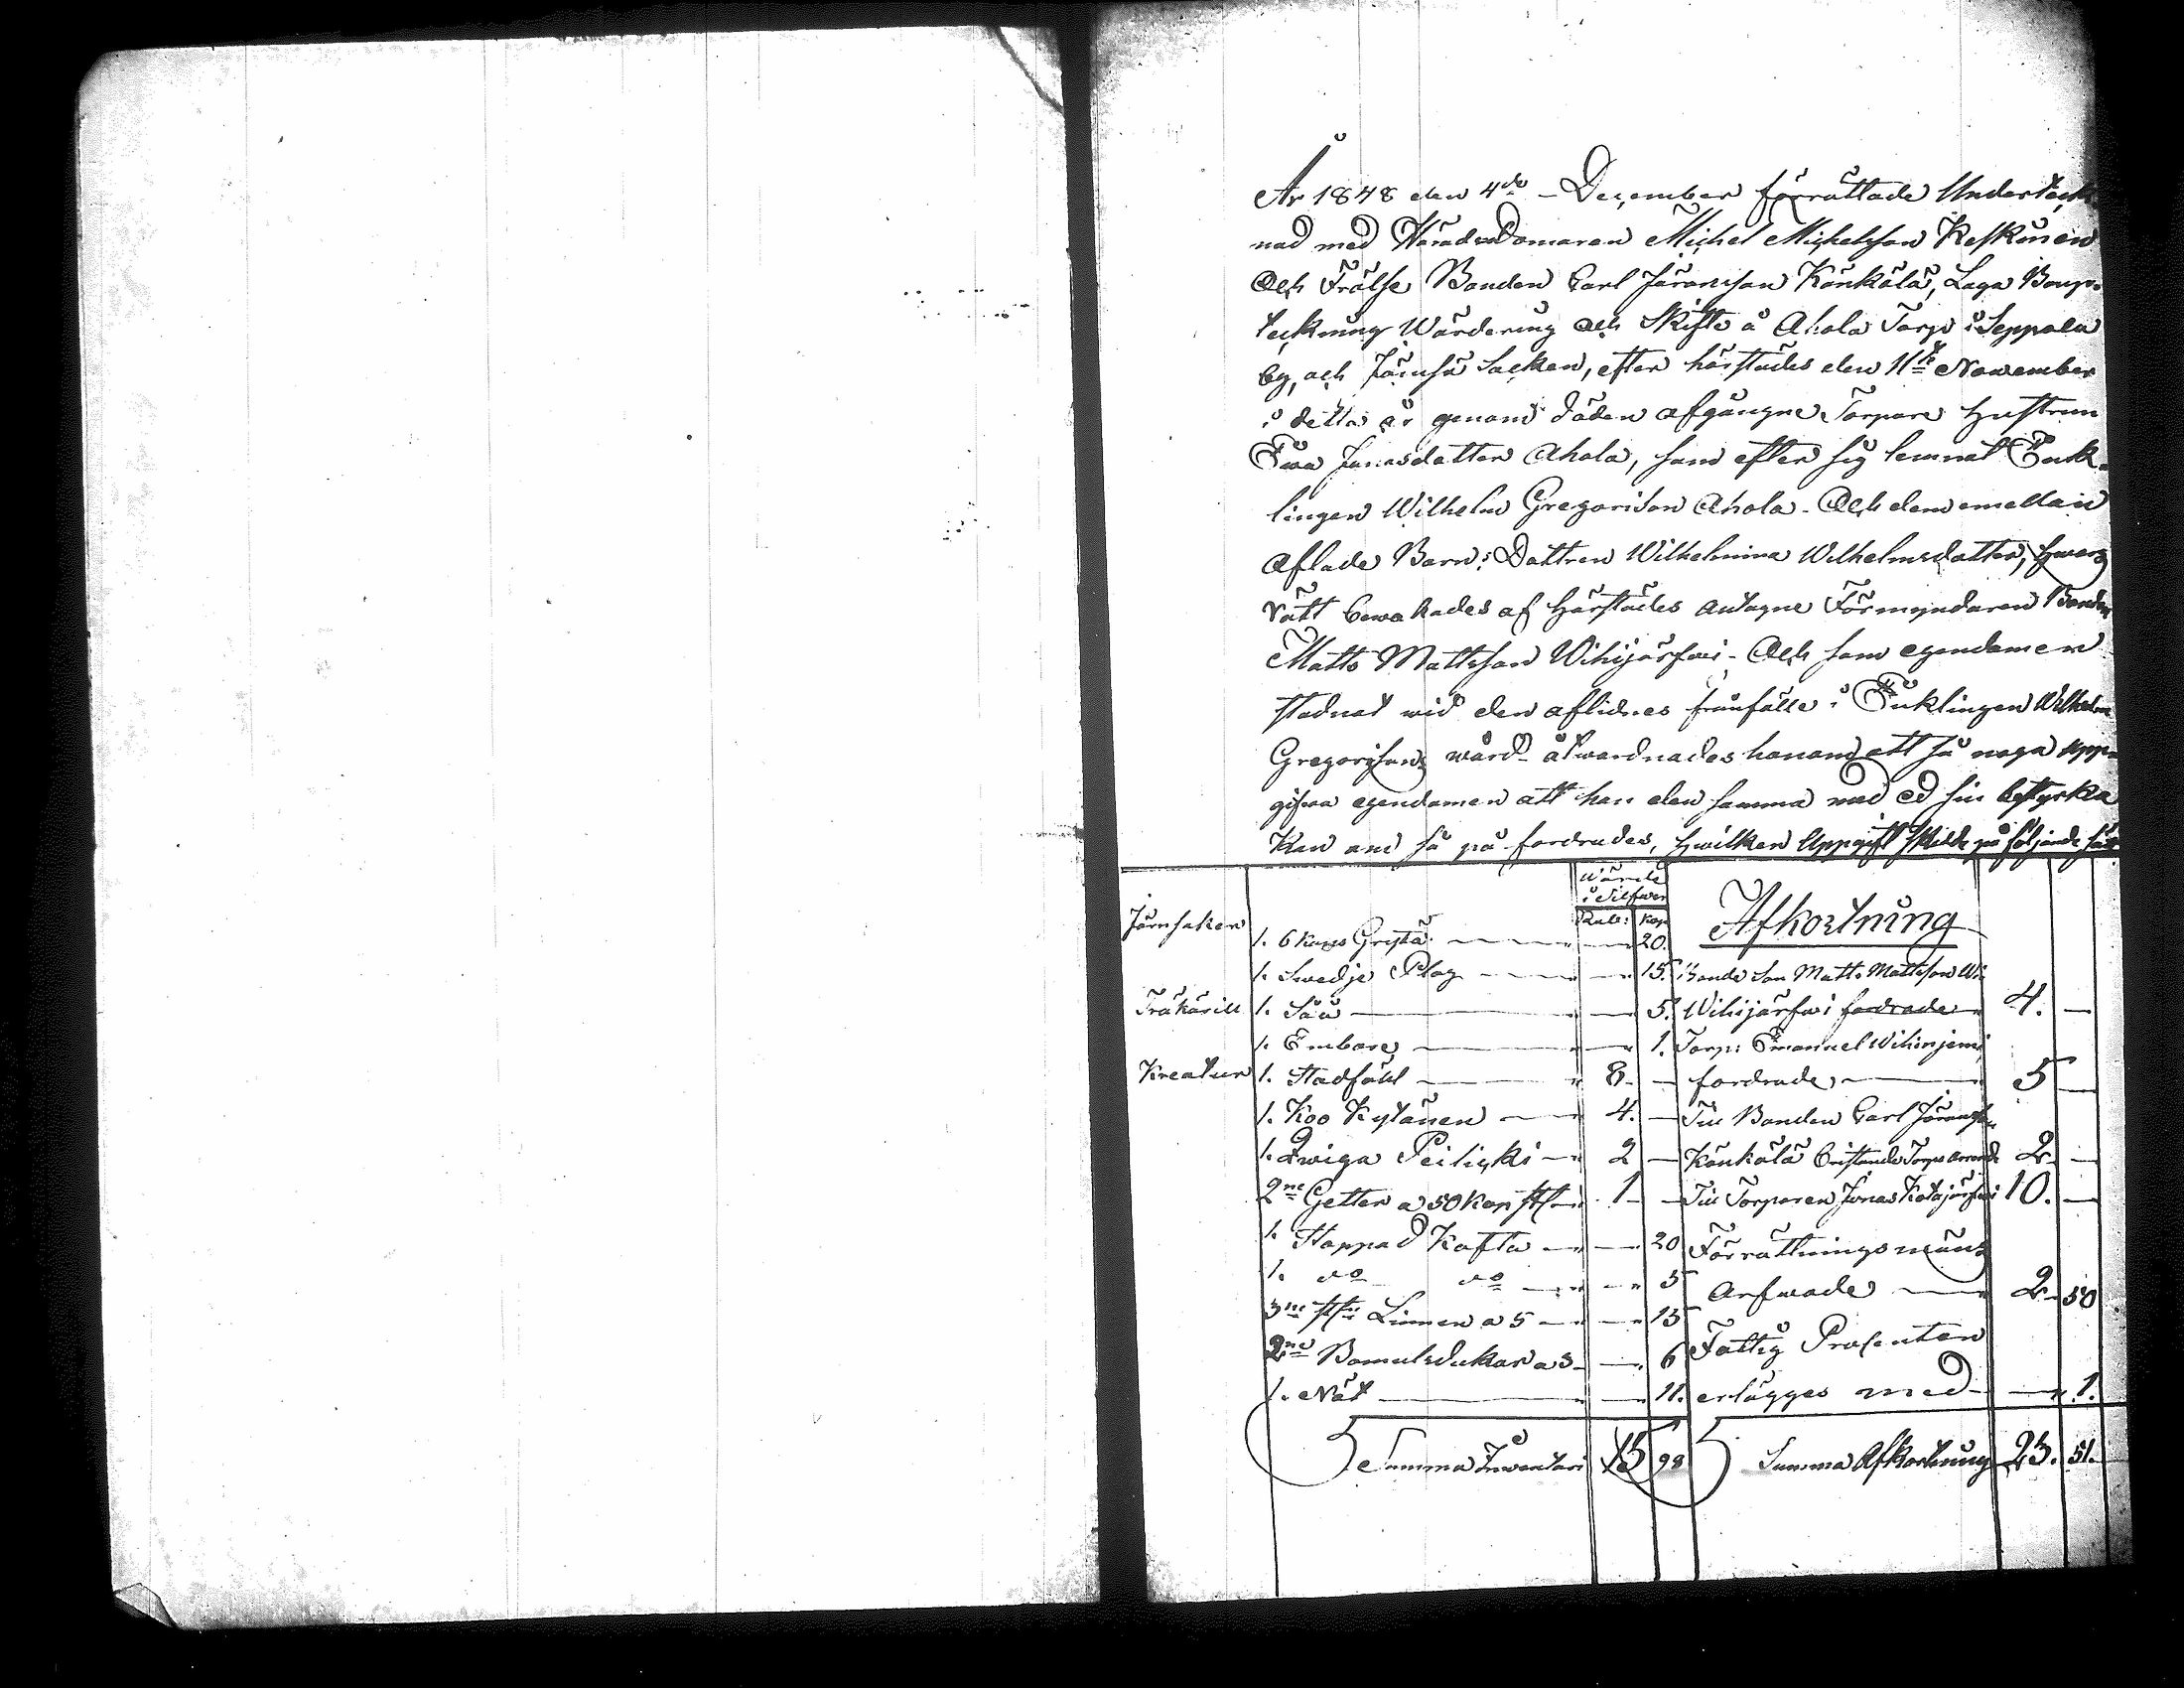 År 1848 den 4de December förrättade Underteck-
nad med HäradsDomaren Michel Michelsson Keskinen
Och Frälse Bonden Carl Göransson Känkälä, Laga Boup-
teckning Wärdering och Skifte å Ahola Torp i Seppola
by, och Jämsä Socken, efter härstädes den 11te November
i detta år genom döden afgångne Torpare Hustrun
Ewa Jonasdotter Ahola, som efter sig lemnat Enk-
lingen Wilhelm Gregorison Ahola - Och dem emellan
aflade Barn: Dottren Wilhelmina Wilhelmsdotter, hwars
rätt bewakades af härstädes antagne Förmyndaren Bonden
Matts Mattsson Wihijärfwi - Och som egendomen
stadnat wid den aflidnes frånfälle i Enklingen Wilhelm
Gregorisons wård åtwardnades honom att så noga upp-
gifwa egendomen att han den samma med ed sin bestyrka
kan om så på fordrades, hwilken Uppgift skedde på följande sätt
Wärde
i Silfwer
Rub: Kop
Järnsaker 1. 6 kans Gryta 20.
Afkortning
1. Swedje Plog 15. Bonde Son Matts Mattsson
Träkärill 1. Så 5. Wihijärfwi fordrade 4. —
1. Embare 1. Torp: Emanuel
Kreatur 1. Stodföhl 8. — fordrade 5 —
1. Koo Kytänen 4. — Till Bonden Carl Göransson
1. Qwiga Peilicki 2 — Känkälä Bristande Torps arrende 2 —
2ne Getter a 50 Kop st 1 — Till Torparen Jonas 10. —
1. Stoppad Kofta 20 Förrättningsmäns
1. do do 5 arfwode 2 50
3ne st Linnen a 5 15 Fattig Procenten
2ne Bomulsdukar a 3 6
1. Nöt 11. erlägges med 1.
Summa Inventari 15 98 Summa Afkortning 23. 51.